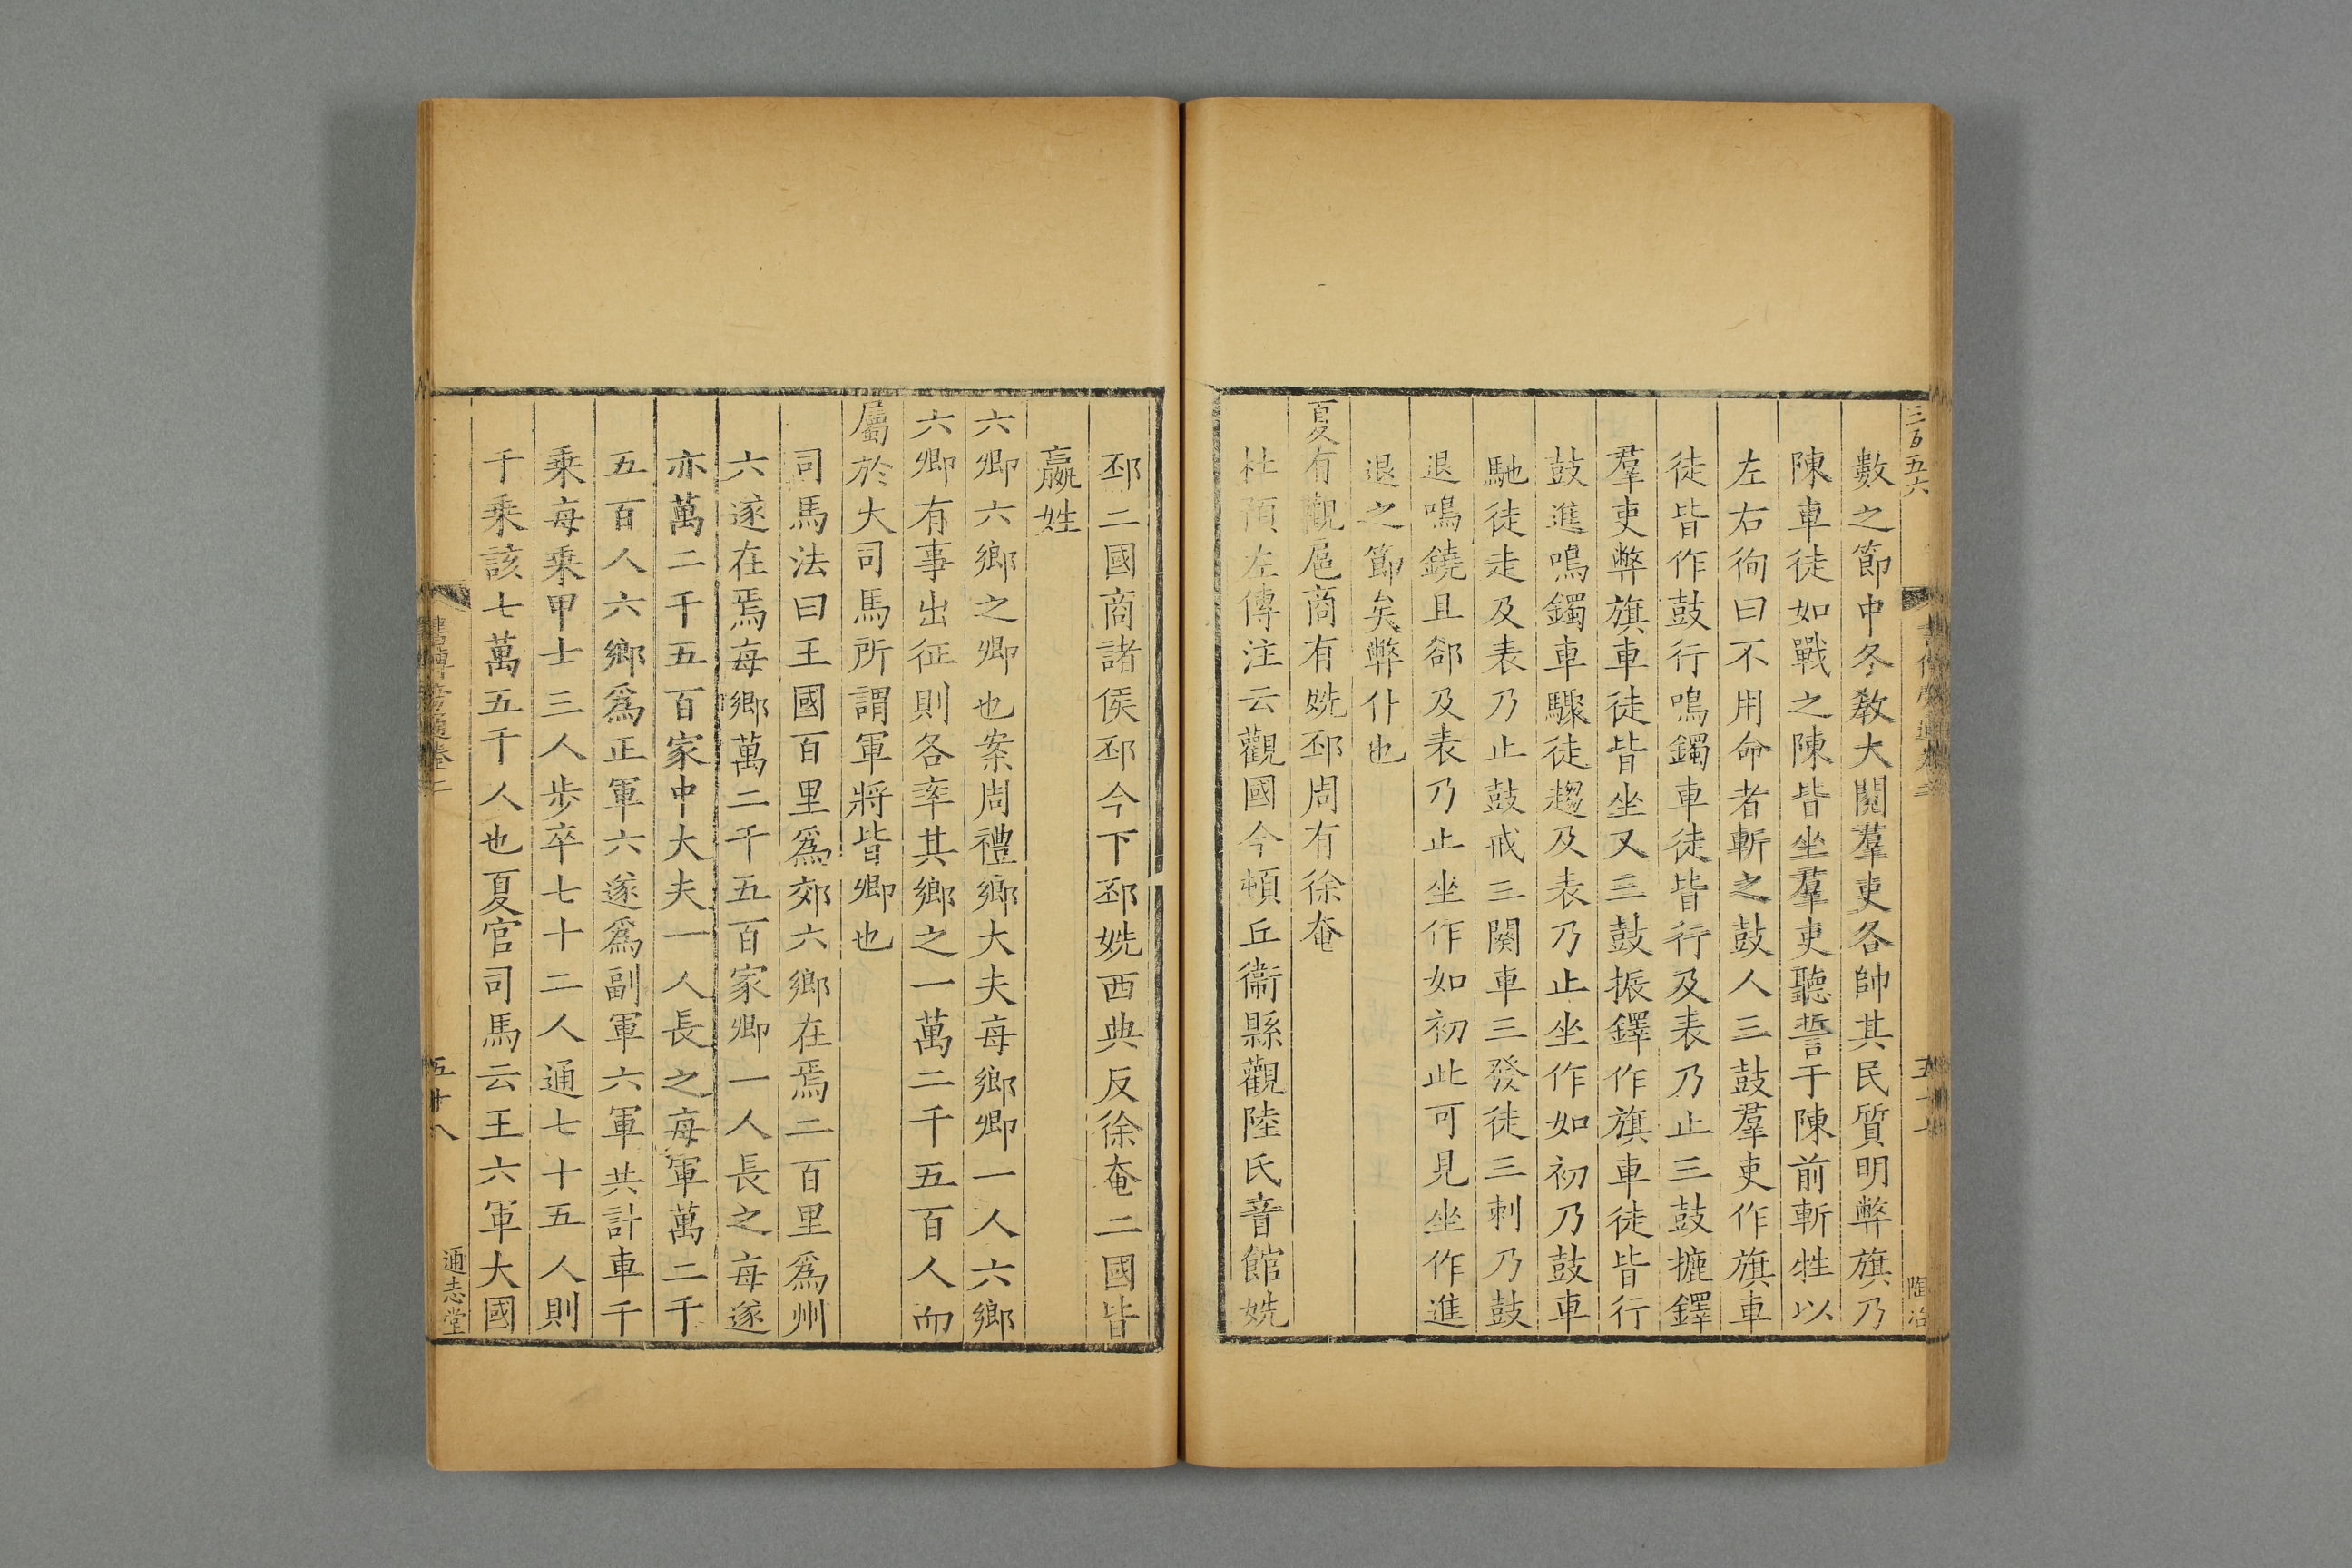 三百五六
陶冶
數之節中冬敎大閱羣吏各帥其民質明弊旗乃
陳車徒如戰之陳皆坐羣吏聽誓于陳前斬牲以
左右徇曰不用命者斬之鼓人三鼓羣吏作旗車
徒皆作鼓行鳴鐲車徒皆行及表乃止三鼓摝鐸
羣吏弊旗車徒皆坐又三鼓振鐸作旗車徒皆行
鼓進鳴鐲車驟徒趨及表乃止坐作如初乃鼓車
馳徒走及表乃止鼓戒三闋車三發徒三刺乃鼓
退鳴鐃且郤及表乃止坐作如初此可見坐作進
退之節矣弊仆也
夏有觀扈商有姺邳周有徐奄
杜預左傳注云觀國今頓丘衞縣觀陸氏音館姺
邳二國商諸侯邳今下邳姺西典反徐奄二國皆
嬴姓
六卿六鄉之卿也案周禮鄉大夫每鄉卿一人六鄉
六卿有事出征則各率其鄉之一萬二千五百人而
屬於大司馬所謂軍將皆卿也
司馬法曰王國百里爲郊六鄉在焉二百里爲州
六遂在焉每鄉萬二千五百家卿一人長之每遂
亦萬二千五百家中大夫一人長之每軍萬二千
五百人六鄉爲正軍六遂爲副軍六軍共計車千
乘每乘甲士三人步卒七十二人通七十五人則
千乘該七萬五千人也夏官司馬云王六軍大國
書傳旁通卷二
五十八
通志堂